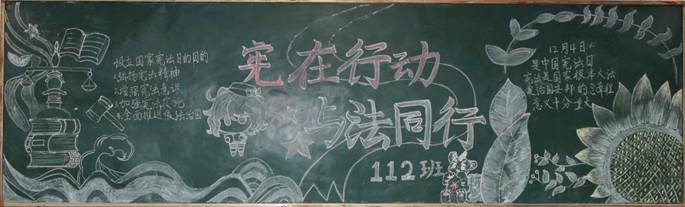 设立国家宪法日的目的
1.弘扬宪法精神
2.增强宪法意识
3.加强宪法实施
4.全面推进依法治国
宪在行动
与法同行
112班
12月4日
是中国宪法日
宪法是国家根本大法
是治国安邦的总章程
意义十分重大